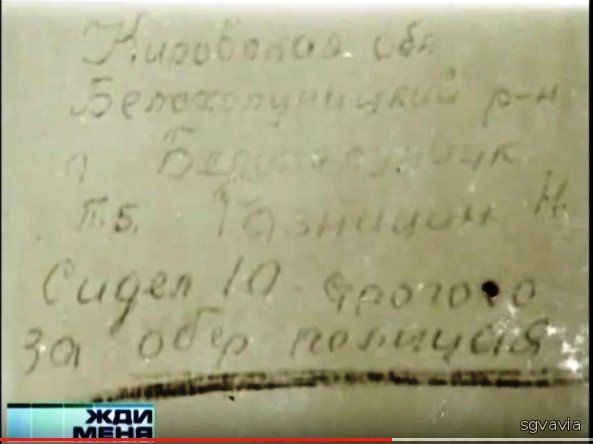 Кировская обл
Белохолуницкий р-н
п Белохолуницк
П.Б. Разницин Н.
Сидел 10 строгого
за обер полицая
ЖДИ
МЕНЯ
sgvavia